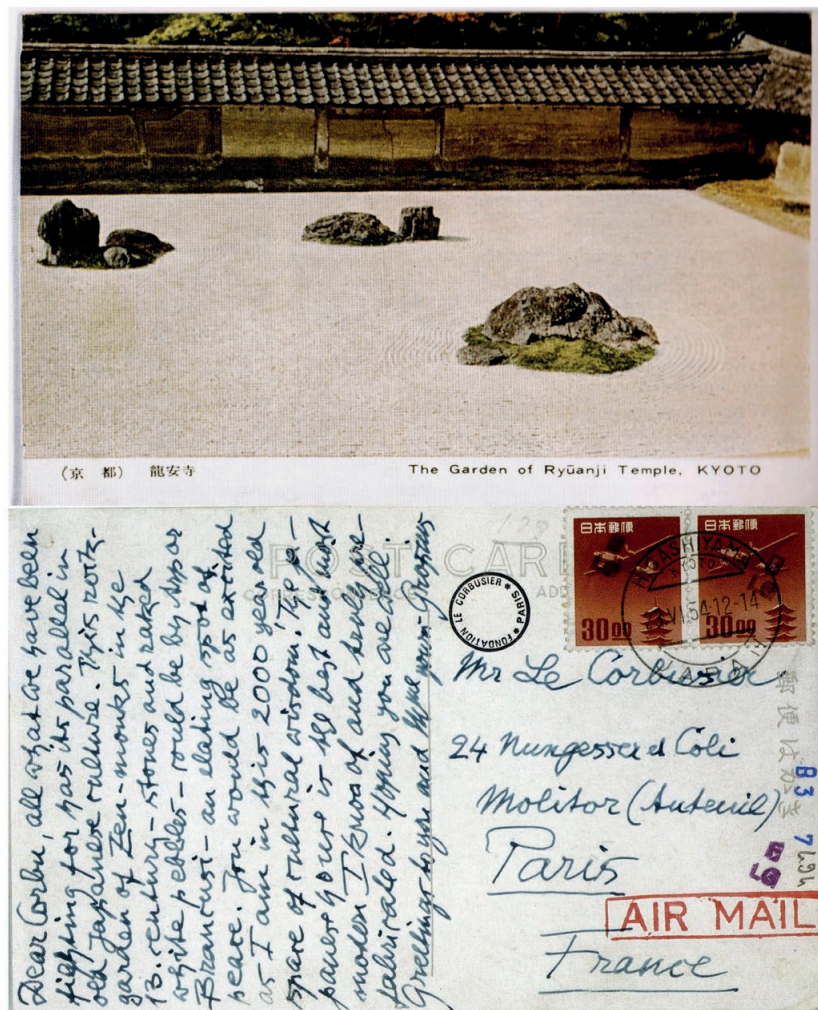 （京 都） 龍安寺
The Garden of Ryūanji Temple, KYOTO
POST CARD
CORRESPONDENCE
Dear Corbu, all what we have been
fighting for has its parallel in
old Japanese culture. This rock-
garden of Zen-monks in the
13. century - stones and raked
white pebbles - could be by Arp or
Brancusi - an elating spot of
peace. You would be as excited
as I am in this 2000 year old
space of cultural wisdom! The Ja-
panese house is the best and most
modern I know of and truly pre-
fabricated. Hoping you are well.
Greetings to you and
FONDATION LE CORBUSIER * PARIS *
日本郵便
30 00
日本郵便
30 00
HIGASHIYAMA
KYOTO
VI.54.12-14
JAPAN
郵便はがき
Mr Le Corbusier
24 Nungesser et Coli
Molitor (Auteuil)
Paris
France
AIR MAIL
B3 7